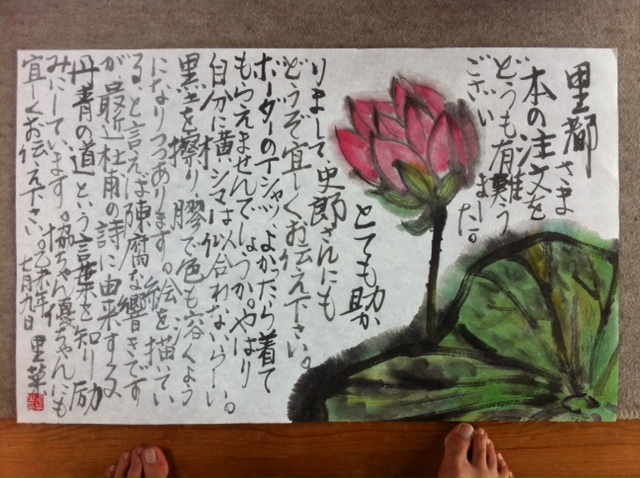 里都さま
本の注文を
どうも有難う
ござい
ました。
とても助か
りまして、史郎さんにも
どうぞ宜しくお伝え下さい。
ボーダーのTシャツ、よかったら着て
もらえませんでしょうか。やはり
自分に横シマは似合わないらしい。
墨を擦り、膠で色も容くよう
になりつつあります。絵を描いてい
る、と言えば陳腐な響きです
が、最近杜甫の詩に由来する
丹青の道という言葉を知り励
みにしています。ちゃんちゃんにも
宜しくお伝え下さい。乙未年
七月九日 里